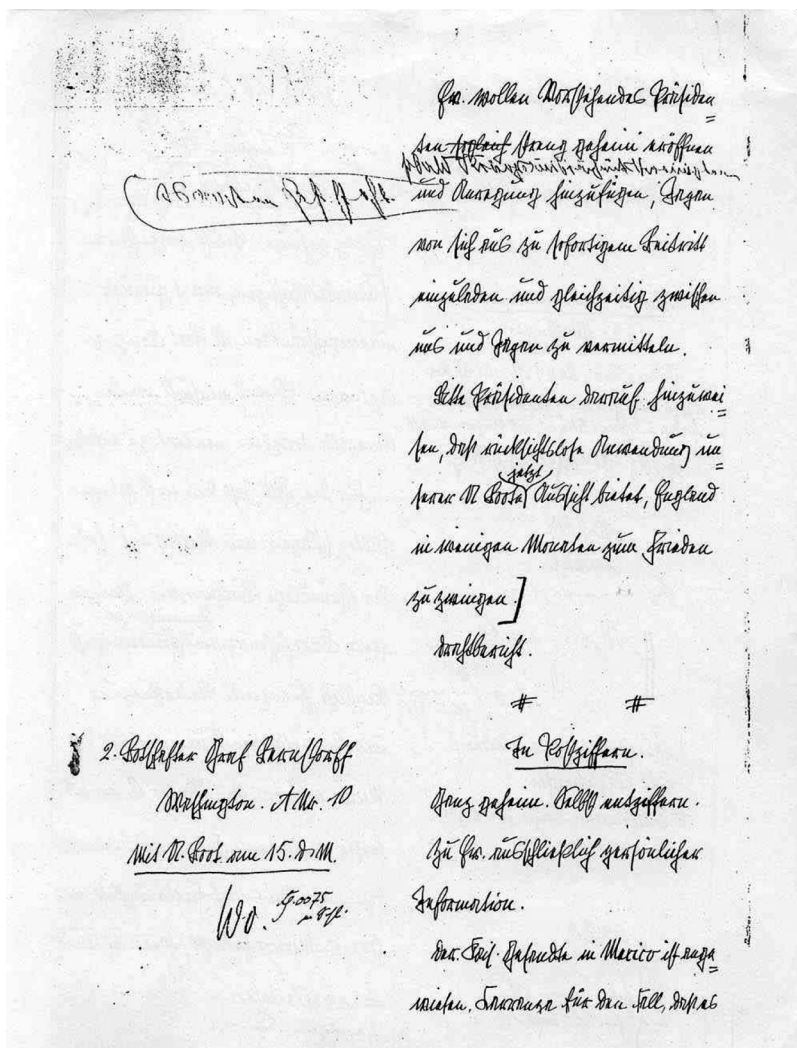 Ew. wollen Vorstehendes Präsiden=
ten sogleich streng geheim eröffnen
sobald Kriegsausbruch
und Anregung hinzufügen, Japan
von sich aus zu sofortigem Beitritt
einzuladen und gleichzeitig zwischen
uns und Japan zu vermitteln.
Bitte Präsidenten darauf hinzuwei=
sen, daß rücksichtslose Anwendung un=
jetzt
serer U Boote Aussicht bietet, England
in wenigen Monaten zum Frieden
zu zwingen.]
Drahtbericht.
# #
2. Botschafter Graf Bernstorff
Washington. A No. 10
Mit U. Boot am 15. d. M.
In Postziffern.
Ganz geheim. Selbst entziffern.
Zu Ew. ausschließlich persönlicher
Information.
Der Kais. Gesandte in Mexico ist ange=
wiesen, Carranza für den Fall, daß es